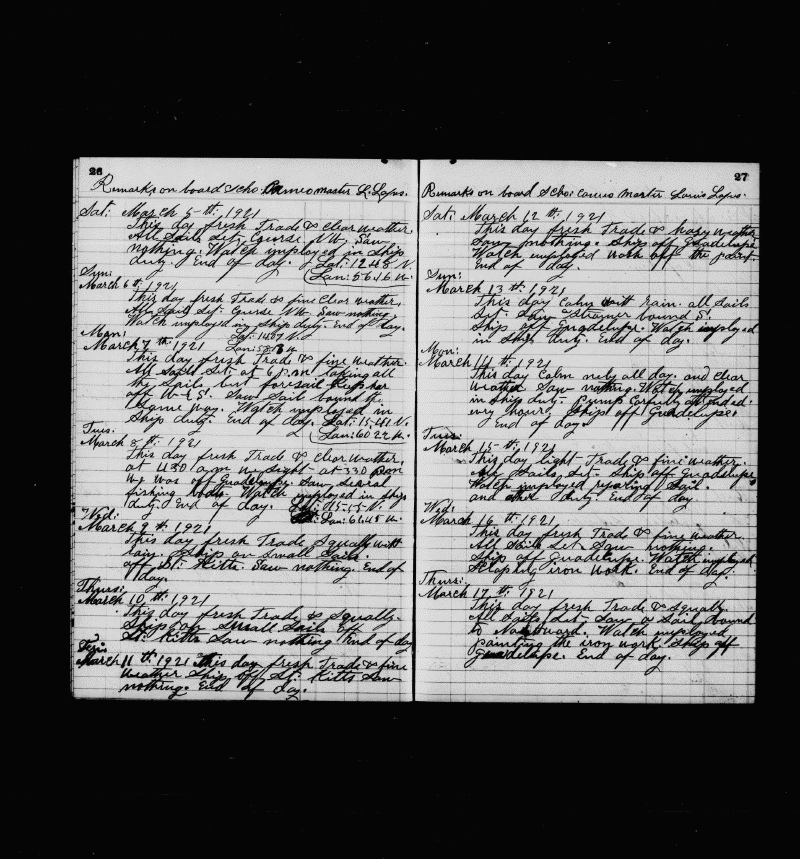 26
Remarks on board Scho: Cameo master L. Lopes.
Sat: March 5th: 1921
This day fresh Trade & clear weather
All Sails Set; Course N W. Saw
nothing. Watch imployed in Ship
duty. End of day. Lat: 12.48 N.
Lon: 56.16 W.
Sun:
March 6th: 1921
This day fresh Trade & fine Clear weather,
All Sails Set: Course N W. Saw nothing
Watch imployed in Ship duty. End of day.
Mon: Lat: 14.07 N.
March 7th: 1921 Lon:
This day fresh Trade & fine weather.
All Sails Set: at 6 p.m. taking all
the Sails but foresail Kept her
off W & S. Saw Sail bound the
Same way. Watch imployed in
Ship duty. End of day. Lat: 15.41 N.
Tues: Lon: 60.22 W.
March 8th: 1921
This day fresh Trade & clear weather,
at 4.30 a.m in sight at 3.30 p.m
We Was off Guadelupe. Saw several
fishing boats. Watch imployed in ship
duty. End of day. Lat: 15.15 N.
Wed: Lon: 61.45 W.
March 9th: 1921
This day fresh Trade Squally witt
rain. Ship on Small Sails.
off St: Kitts. Saw nothing. End of
day.
Thurs:
March 10th: 1921
This day fresh Trade & Squally.
Ship on Small Sails off
St: Kitts Saw nothing End of day
March 11th: 1921 This day fresh Trade & fine
weather Ship off St: Kitts Saw
nothing. End of day.
27
Remarks on board Scho: Cameo Master Louis Lopes.
Sat: March 12th: 1921
This day fresh Trade & hazy weather
Saw nothing. Ship off Guadelupe
Watch imployed work off the paint
End of day.
Sun:
March 13th: 1921
This day Calm witt rain. all Sails
Set. Saw Steamer bound S.
Ship off Guadelupe. Watch imployed
in Ship duty. End of day.
Mon:
March 14th: 1921
This day Calm nerly all day. and clear
weather Saw nothing. Watch imployed
in Ship duty. Pump Carfuly attended
evry hours. Ship off Guadelupe.
End of day.
Tues:
March 15th: 1921
This day light Trade & fine weather.
All Sails Set. Ship off Guadelupe
Watch imployed reparing Sail.
and duty End of day.
Wed:
March 16th: 1921
This day fresh Trade & fine weather.
All Sails Set Saw nothing.
Ship off Guadelupe. Watch imployed
Scraping iron Work. End of day.
Thurs:
March 17th: 1921
This day fresh Trade & Squally.
All Sails Set; Saw a Sail bound
to Watch imployed
painting the iron work. Ship off
Guadelupe. End of day.